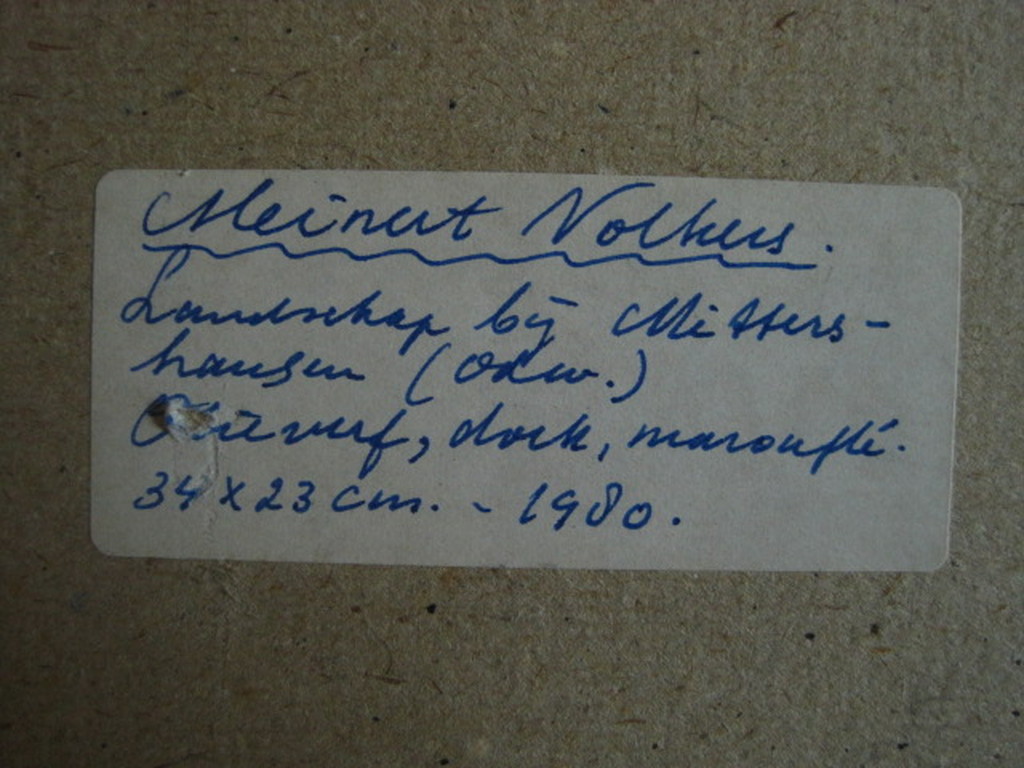 Meinert Volkers.
Landschap bij Mitters-
hausen (Odw.)
Olieverf, doek, marouflé.
34 x 23 cm. - 1980.